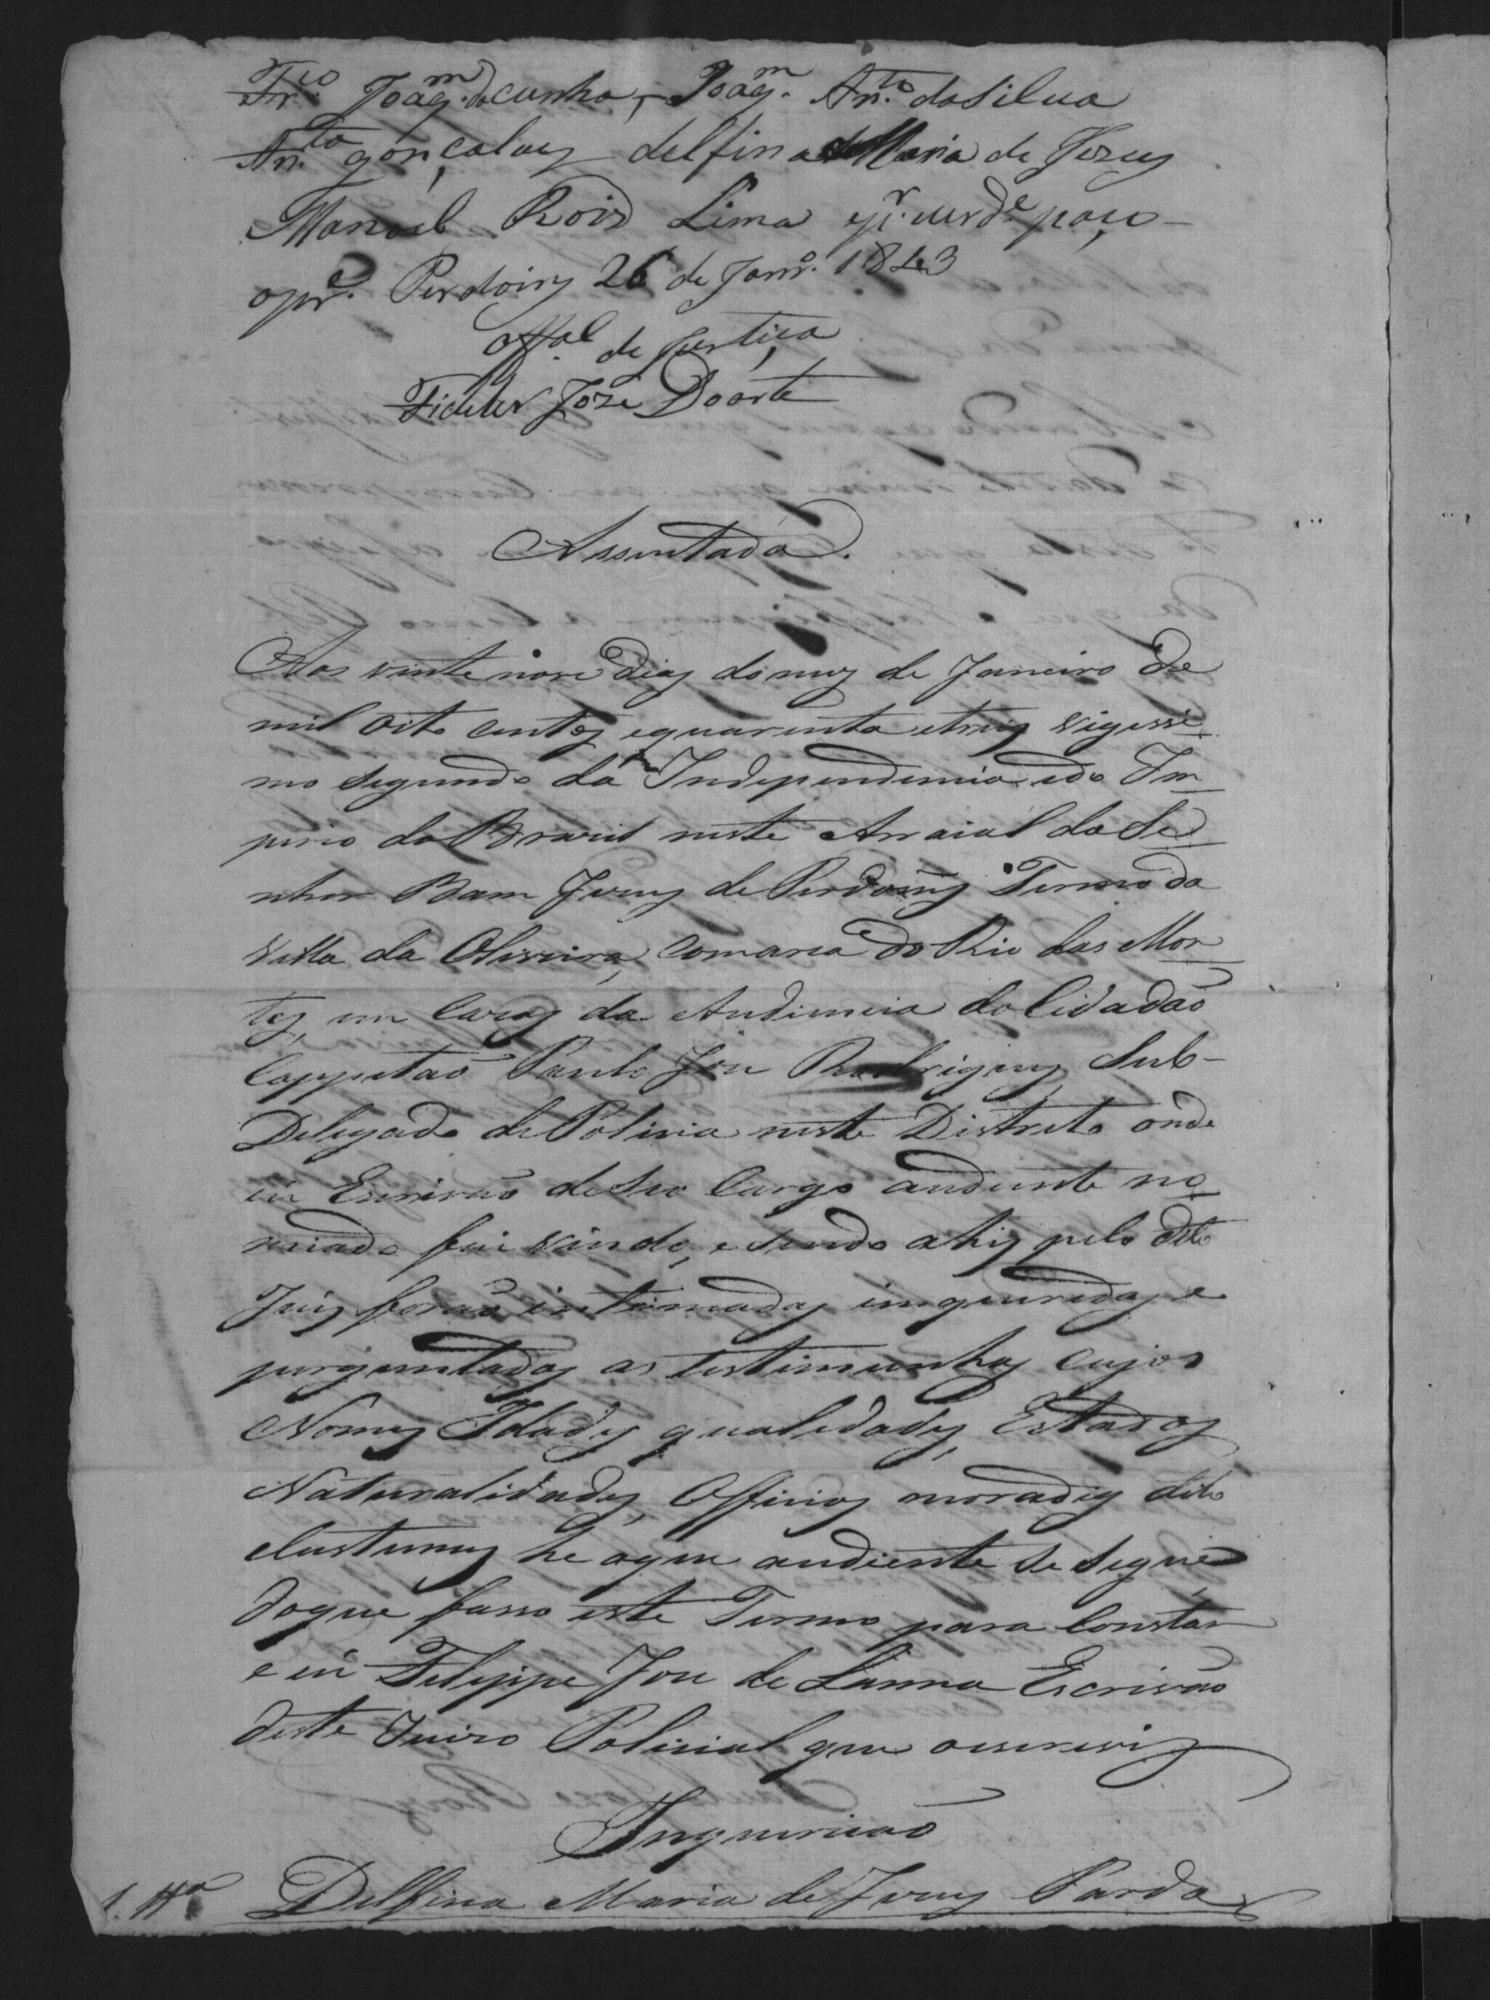 Fr.co Joaq.m da cunha, Joaq.m An.to da Silua
An.to gonçaluez delfina Maria de Jezuz
Manoel Roiz Lima epr. uerd.e paço
opr.e Perdoinz 26 de Janr.o 1843
Off.al de Justiça
Fideles Joze Doarte
Assentada.
Aos vinte nove dias do mez de Janeiro de
mil oito centos equarenta etreis vigessi-
mo segundo da Independencia edo Im-
perio do Brazil neste Arraial do Se-
nhor Bam Jezuz de Perdoins Termo da
Villa da Oliveira, Comarca do Rio das Mor-
tes, em Cazas da Audiencia do Cidadão
Cappitão Paulo Joze Rodrigues Sub-
Delegado de Policia neste Distreto onde
eu Escrivão de seu Cargo audiente no-
miado fui vindo, e sendo ahiz pelo dito
Juiz forão intimadas inqueridas e
perguntadas as testimunhas cujos
Nomes Idades qualidades, Estados
Naturalidades, Officios moradias dito
Custumes he oque audiente se segue
doque fasso este Termo para Constar
e eu Felippe Joze de Lanna Escrivão
deste Juizo Policial que oescreviz
Inquerição
1. Tt.a Delfina Maria de Jezuz Parda